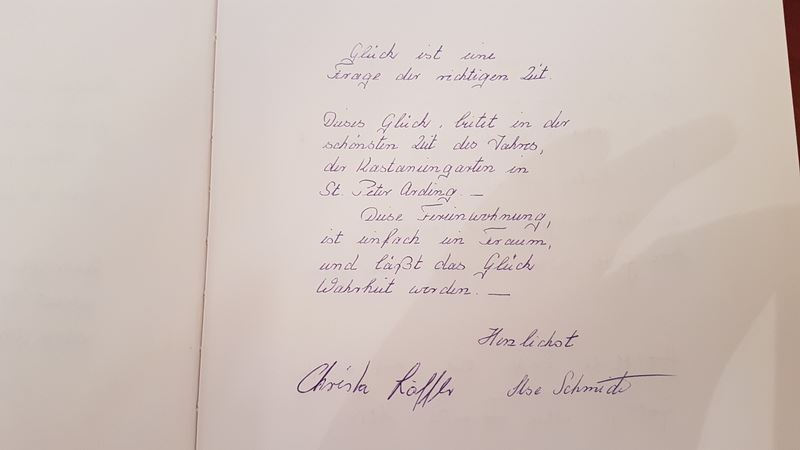 Glück ist eine
Frage der richtigen Zeit.
Dieses Glück, bietet in der
schönsten Zeit des Jahres,
der Kastaniengarten in
St. Peter Ording. —
Diese Ferienwohnung,
ist einfach ein Traum,
und läßt das Glück
Wahrheit werden. —
Herzlichst
Christa Löffler Ilse Schmidt